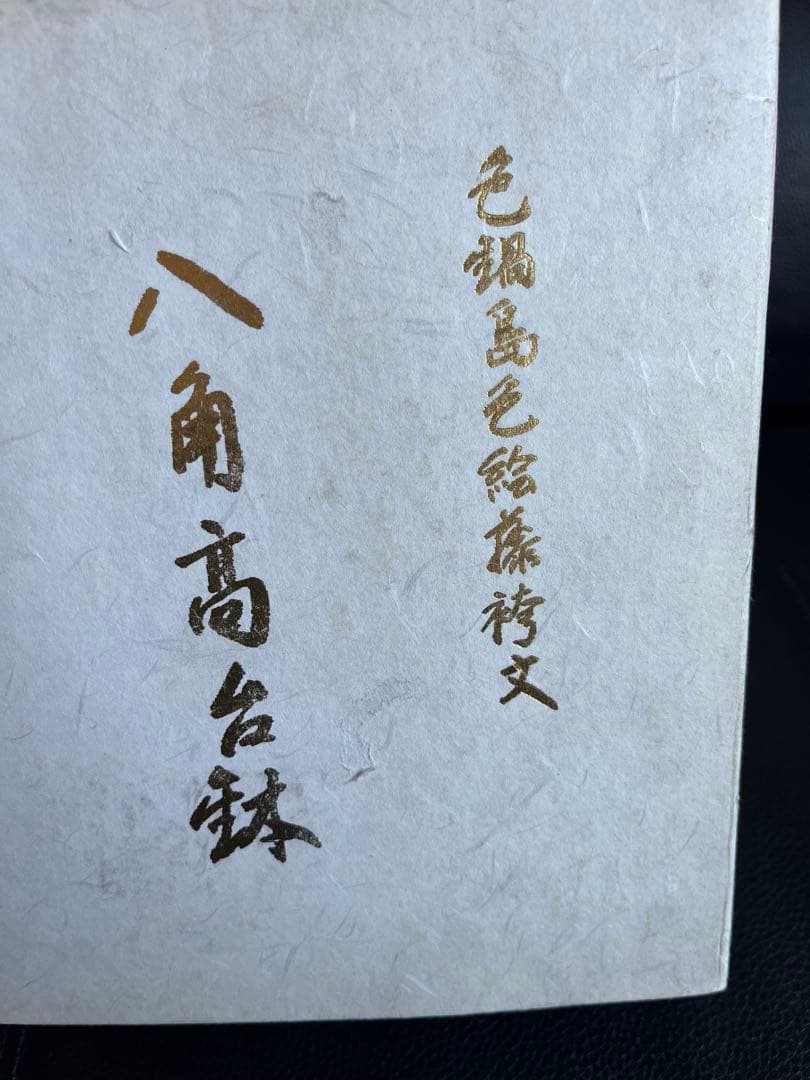 色鍋島色絵藤袴文
八角高台鉢